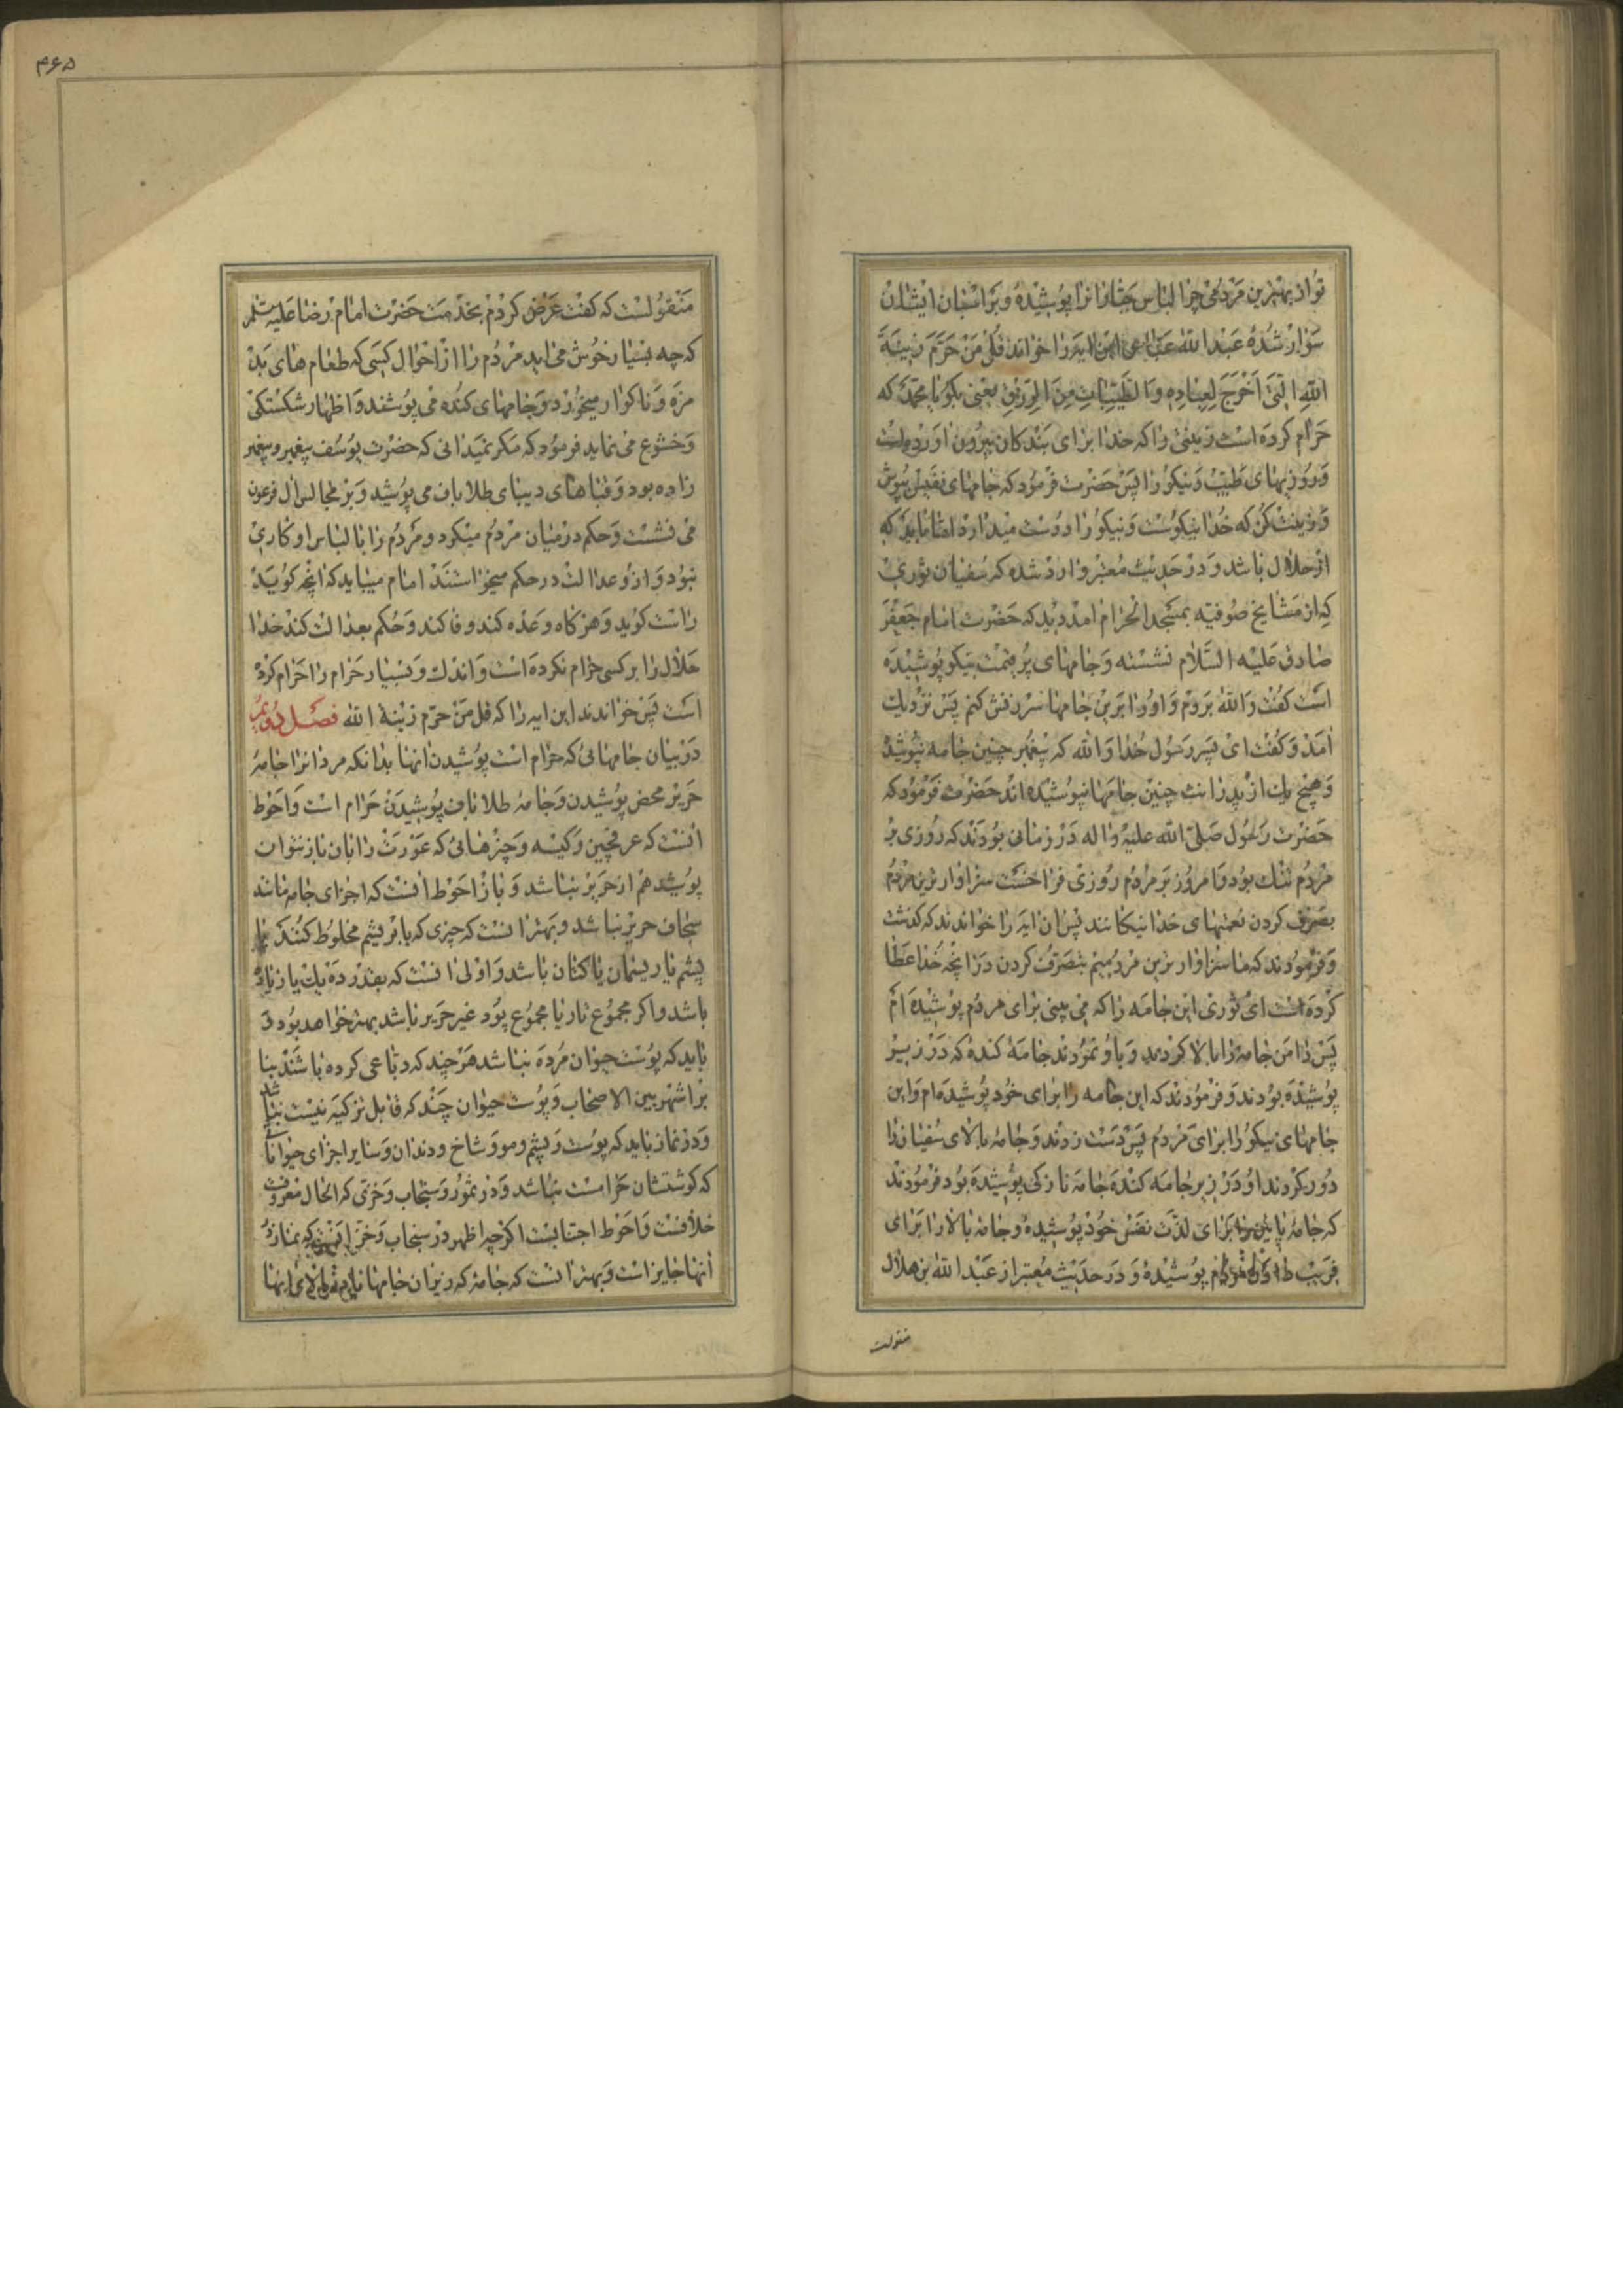 تو از بهترین مردمی چرا لباس جباران را پوشیده و بر اسبان ایشان
سوار شده عبدالله عباس این آیه را خواند قل من حرم زینة
الله التی اخرج لعباده و الطیبات من الرزق یعنی بگو یا محمد که
حرام کرده است زینتی را که خدا برای بندگان بیرون آورده است
و روزیهای طیب و نیکو را پس حضرت فرمود که جامهای نفیس بپوش
و زینت کن که خدا نیکوست و نیکو را دوست میدارد اما باید که
از حلال باشد و در حدیث معتبر وارد شده که سفیان ثوری
که از مشایخ صوفیه بمسجد الحرام آمد دید که حضرت امام جعفر
صادق علیه السلام نشسته و جامهای پر قیمت نیکو پوشیده
است گفت والله بروم و او را بر این جامها سرزنش کنم پس نزدیک
آمد و گفت ای پسر رسول خدا والله که پیغمبر چنین جامه نپوشید
و هیچ یک از پدرانت چنین جامها نپوشیده اند حضرت فرمود که
حضرت رسول صلی الله علیه و آله در زمانی بودند که روزی بر
مردم تنک بود و امروز بر مردم روزی فراخست سزاوارترین مردم
بصرف کردن نعمتهای خدا نیکانند پس آن آیه را خواندند که گذشت
و فرمودند که ما سزاوارترین مردمیم بتصرف کردن در آنچه خدا عطا
کرده است ای ثوری این جامه را که می بینی برای مردم پوشیده ام
پس دامن جامه را بالا کردند و باو نمودند جامه کنده که در زیر
پوشیده بودند و فرمودند که این جامه را برای خود پوشیده ام و این
جامهای نیکو را برای مردم پس دست زدند و جامه بالای سفیان را
دور کردند او در زیر جامه کنده جامه نازکی پوشیده بود فرمودند
که جامه پایین را برای لذت نفس خود پوشیده و جامه بالا را برای
فریب دادن مردم پوشیده و در حدیث معتبر از عبدالله بن هلال
منقولست
۴۶۵
منقولست که گفت عرض کردم بخدمت حضرت امام رضا علیه السلام
که چه بسیار خوش می آید مردم را از احوال کسی که طعام های بد
مزه و ناگوار میخورد و جامهای کنده می پوشند و اظهار شکستگی
و خشوع می نماید فرمود که مگر نمیدانی که حضرت یوسف پیغمبر و پیغمبر
زاده بود و قباهای دیبای طلا باف می پوشید و بر مجالس آل فرعون
می نشست و حکم در میان مردم میکرد و مردم را با لباس او کاری
نبود و از او عدالت در حکم میخواستند امام میباید که آنچه گوید
راست گوید و هرگاه وعده کند وفا کند و حکم بعدالت کند خدا
حلال را بر کسی حرام نکرده است و اندک و بسیار حرام را حرام کرده
است پس خواندند این آیه را که قل من حرم زینة الله فصل دویم
در بیان جامهائی که حرام است پوشیدن آنها بدانکه مردان را جامه
حریر محض پوشیدن و جامه طلا باف پوشیدن حرام است و احوط
آنست که عرقچین و کیسه و چیزهائی که عورت را بآن باز نتوان
پوشید هم از حریر نباشد و باز احوط آنست که اجزای جامه مانند
سجاف حریر نباشد و بهتر آنست که چیزی که بابریشم مخلوط کنند
پشم یا ریسمان یا کتان باشد و اولی آنست که بقدر ده یک یا زیاده
باشد و اگر مجموع تار یا مجموع پود غیر حریر باشد بهتر خواهد بود و
باید که پوست حیوان مرده نباشد هرچند که دباغی کرده باشند بنا
بر اشهر بین الاصحاب و پوست حیوان چند که قابل تزکیه نیست نباشد
و در نماز باید که پوست و پشم و مو و شاخ و دندان و سایر اجزای حیواناتی
که گوشتشان حرامست نباشد و در سمور و سنجاب و خزی که الحال معروفست
خلافست و احوط اجتنابست اگرچه اظهر در سنجاب و خز آنست که نماز در
آنها جایز است و بهتر آنست که جامه که در زیر آن جامها یا بالای اینها